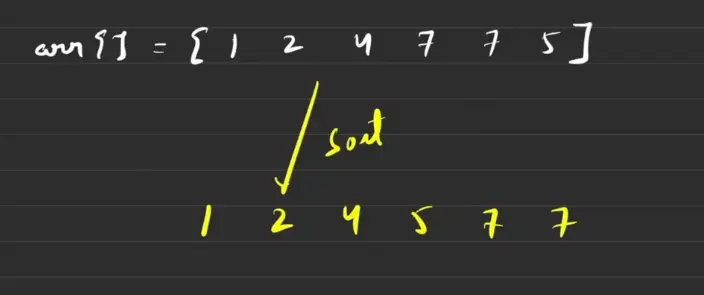 arr[] = [ 1 2 4 7 7 5 ]
sort
1 2 4 5 7 7